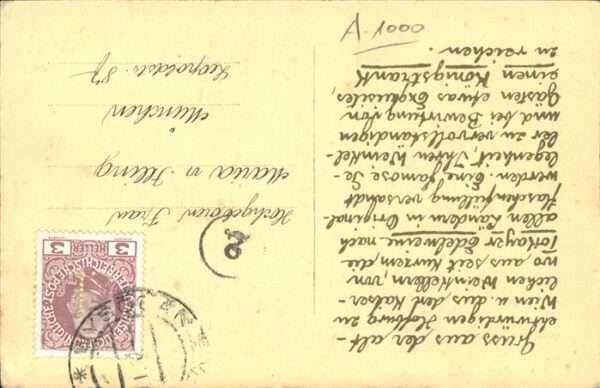 A. 1000
Gruss aus der alt-
ehrwürdigen Hofburg zu
Wien u. aus den Kaiser-
lichen Weinkellern, von
wo aus seit kurzem die
Tokayer Edelweine nach
allen Ländern in Original-
flaschenfüllung versandt
werden. Eine famose Ge-
legenheit, Ihren Weinkel-
ler zu vervollständigen
und bei Bewirtung von
Gästen etwas Exquisites,
einen Königstrank
zu reichen.
Hochgeboren Frau
Maria v. Illing
München
Leopoldstr. 87
3 3
HELLER